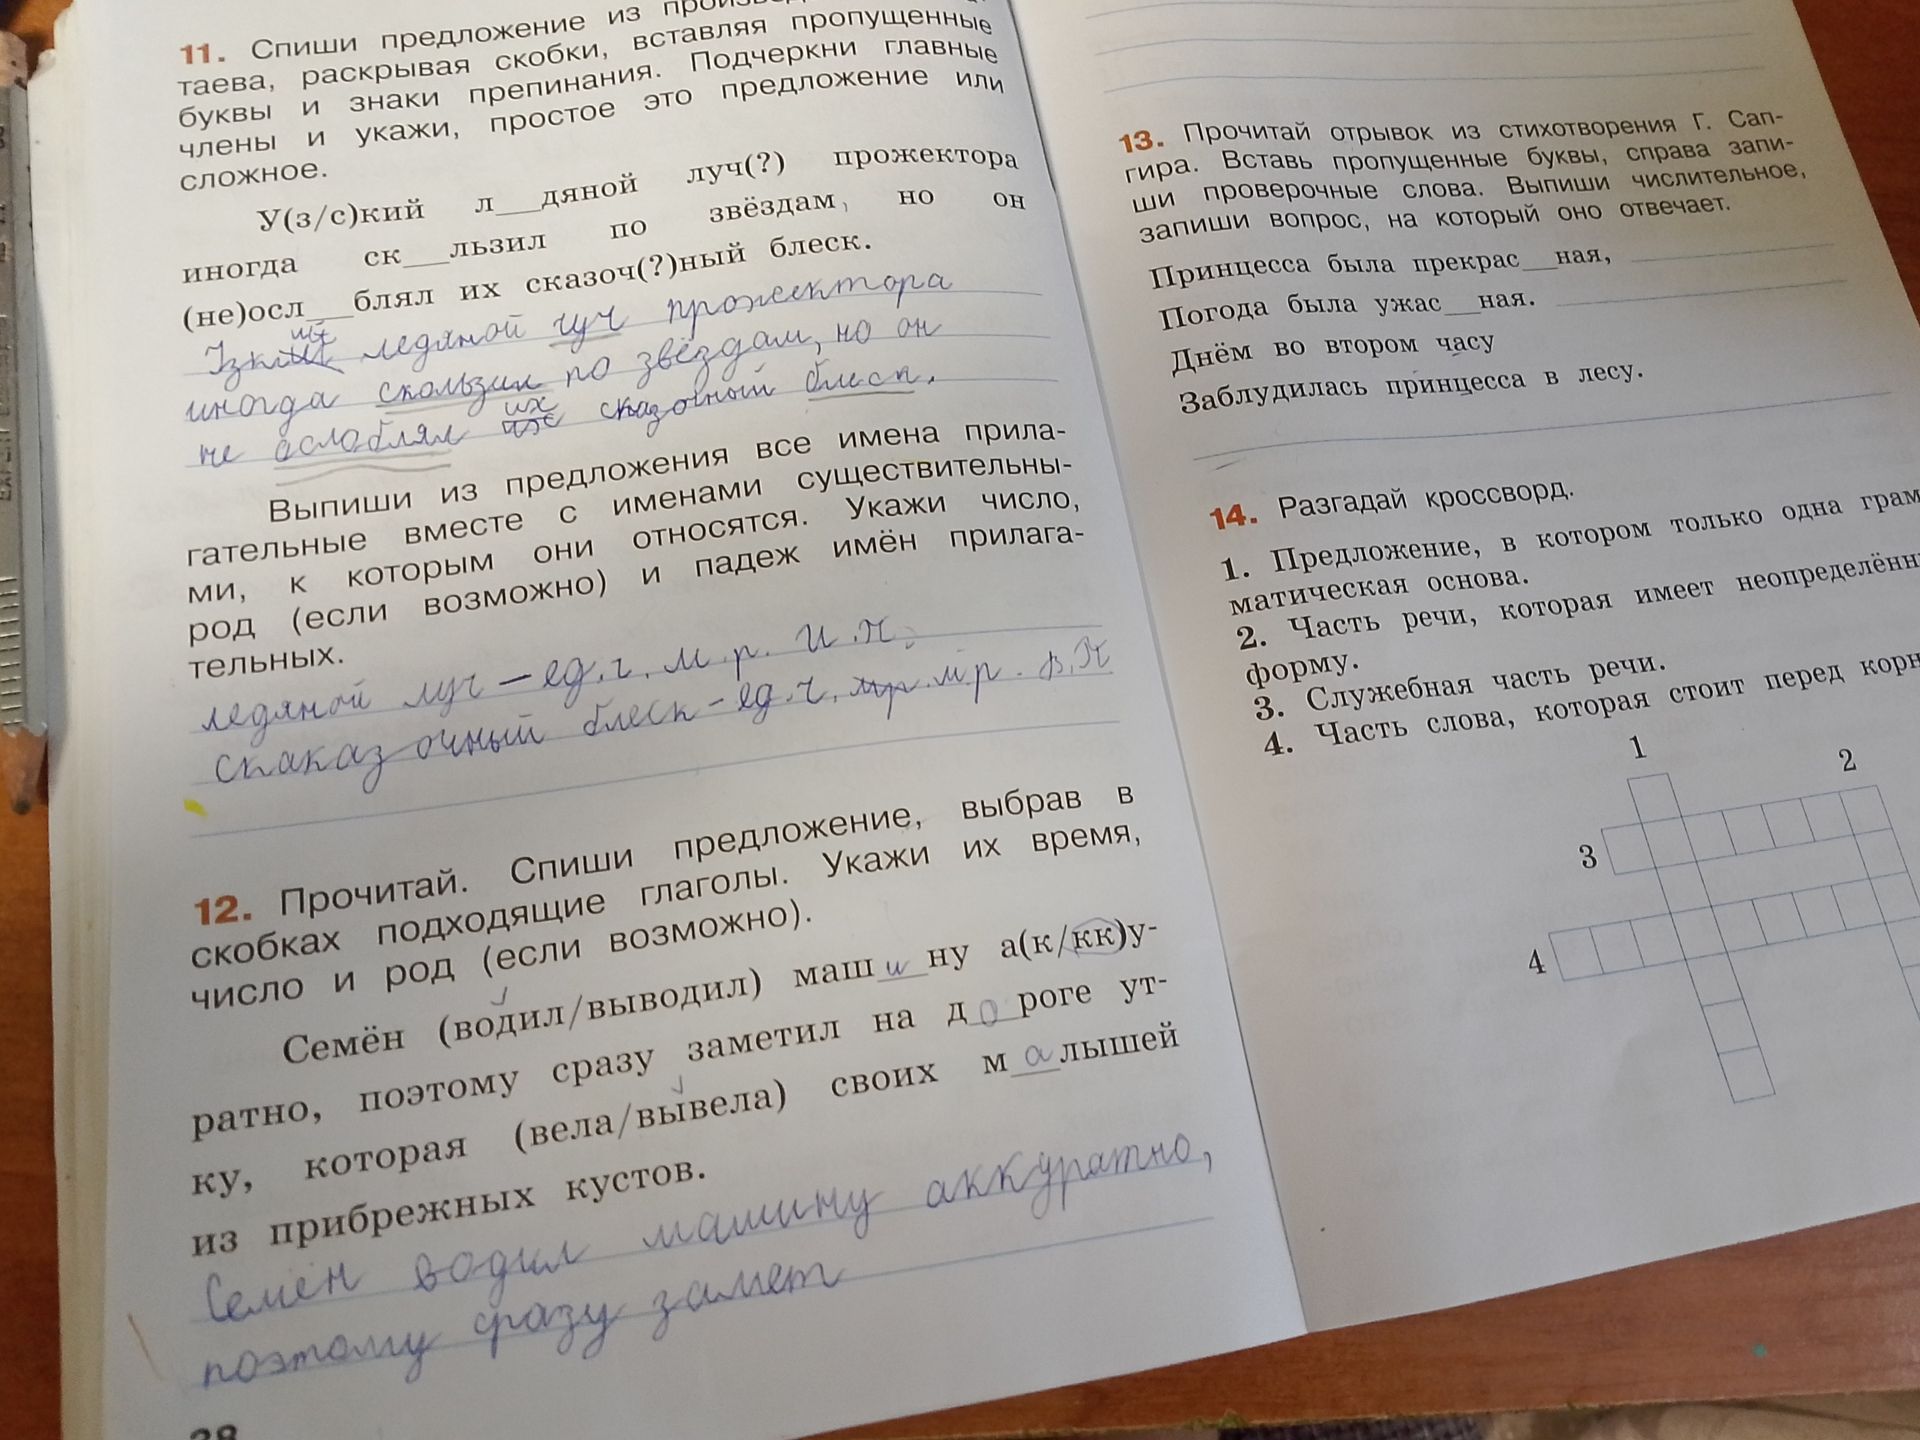 11. Спиши предложение из
таева, раскрывая скобки, вставляя пропущенные
буквы и знаки препинания. Подчеркни главные
члены и укажи, простое это предложение или
сложное.
У(з/с)кий л__дяной луч(?) прожектора
иногда ск__льзил по звёздам, но он
(не)осл__блял их сказоч(?)ный блеск.
ледяной луч прожектора
иногда скользил по звёздам, но он
не ослаблял их сказочный блеск.
Выпиши из предложения все имена прила-
гательные вместе с именами существительны-
ми, к которым они относятся. Укажи число,
род (если возможно) и падеж имён прилага-
тельных.
ледяной луч – ед.ч. м.р. И.п.
скаказочный блеск – ед.ч. м.р. В.п
12. Прочитай. Спиши предложение, выбрав в
скобках подходящие глаголы. Укажи их время,
число и род (если возможно).
Семён (водил/выводил) маш и ну а(к/кк)у-
ратно, поэтому сразу заметил на д о роге ут-
ку, которая (вела/вывела) своих м а лышей
из прибрежных кустов.
Семён водил машину аккуратно,
поэтому сразу замет
38
13. Прочитай отрывок из стихотворения Г. Сап-
гира. Вставь пропущенные буквы, справа запи-
ши проверочные слова. Выпиши числительное,
запиши вопрос, на который оно отвечает.
Принцесса была прекрас__ная,
Погода была ужас__ная.
Днём во втором часу
Заблудилась принцесса в лесу.
14. Разгадай кроссворд.
1. Предложение, в котором только одна грам
матическая основа.
2. Часть речи, которая имеет неопределённ
форму.
3. Служебная часть речи.
4. Часть слова, которая стоит перед корн
1
2
3
4